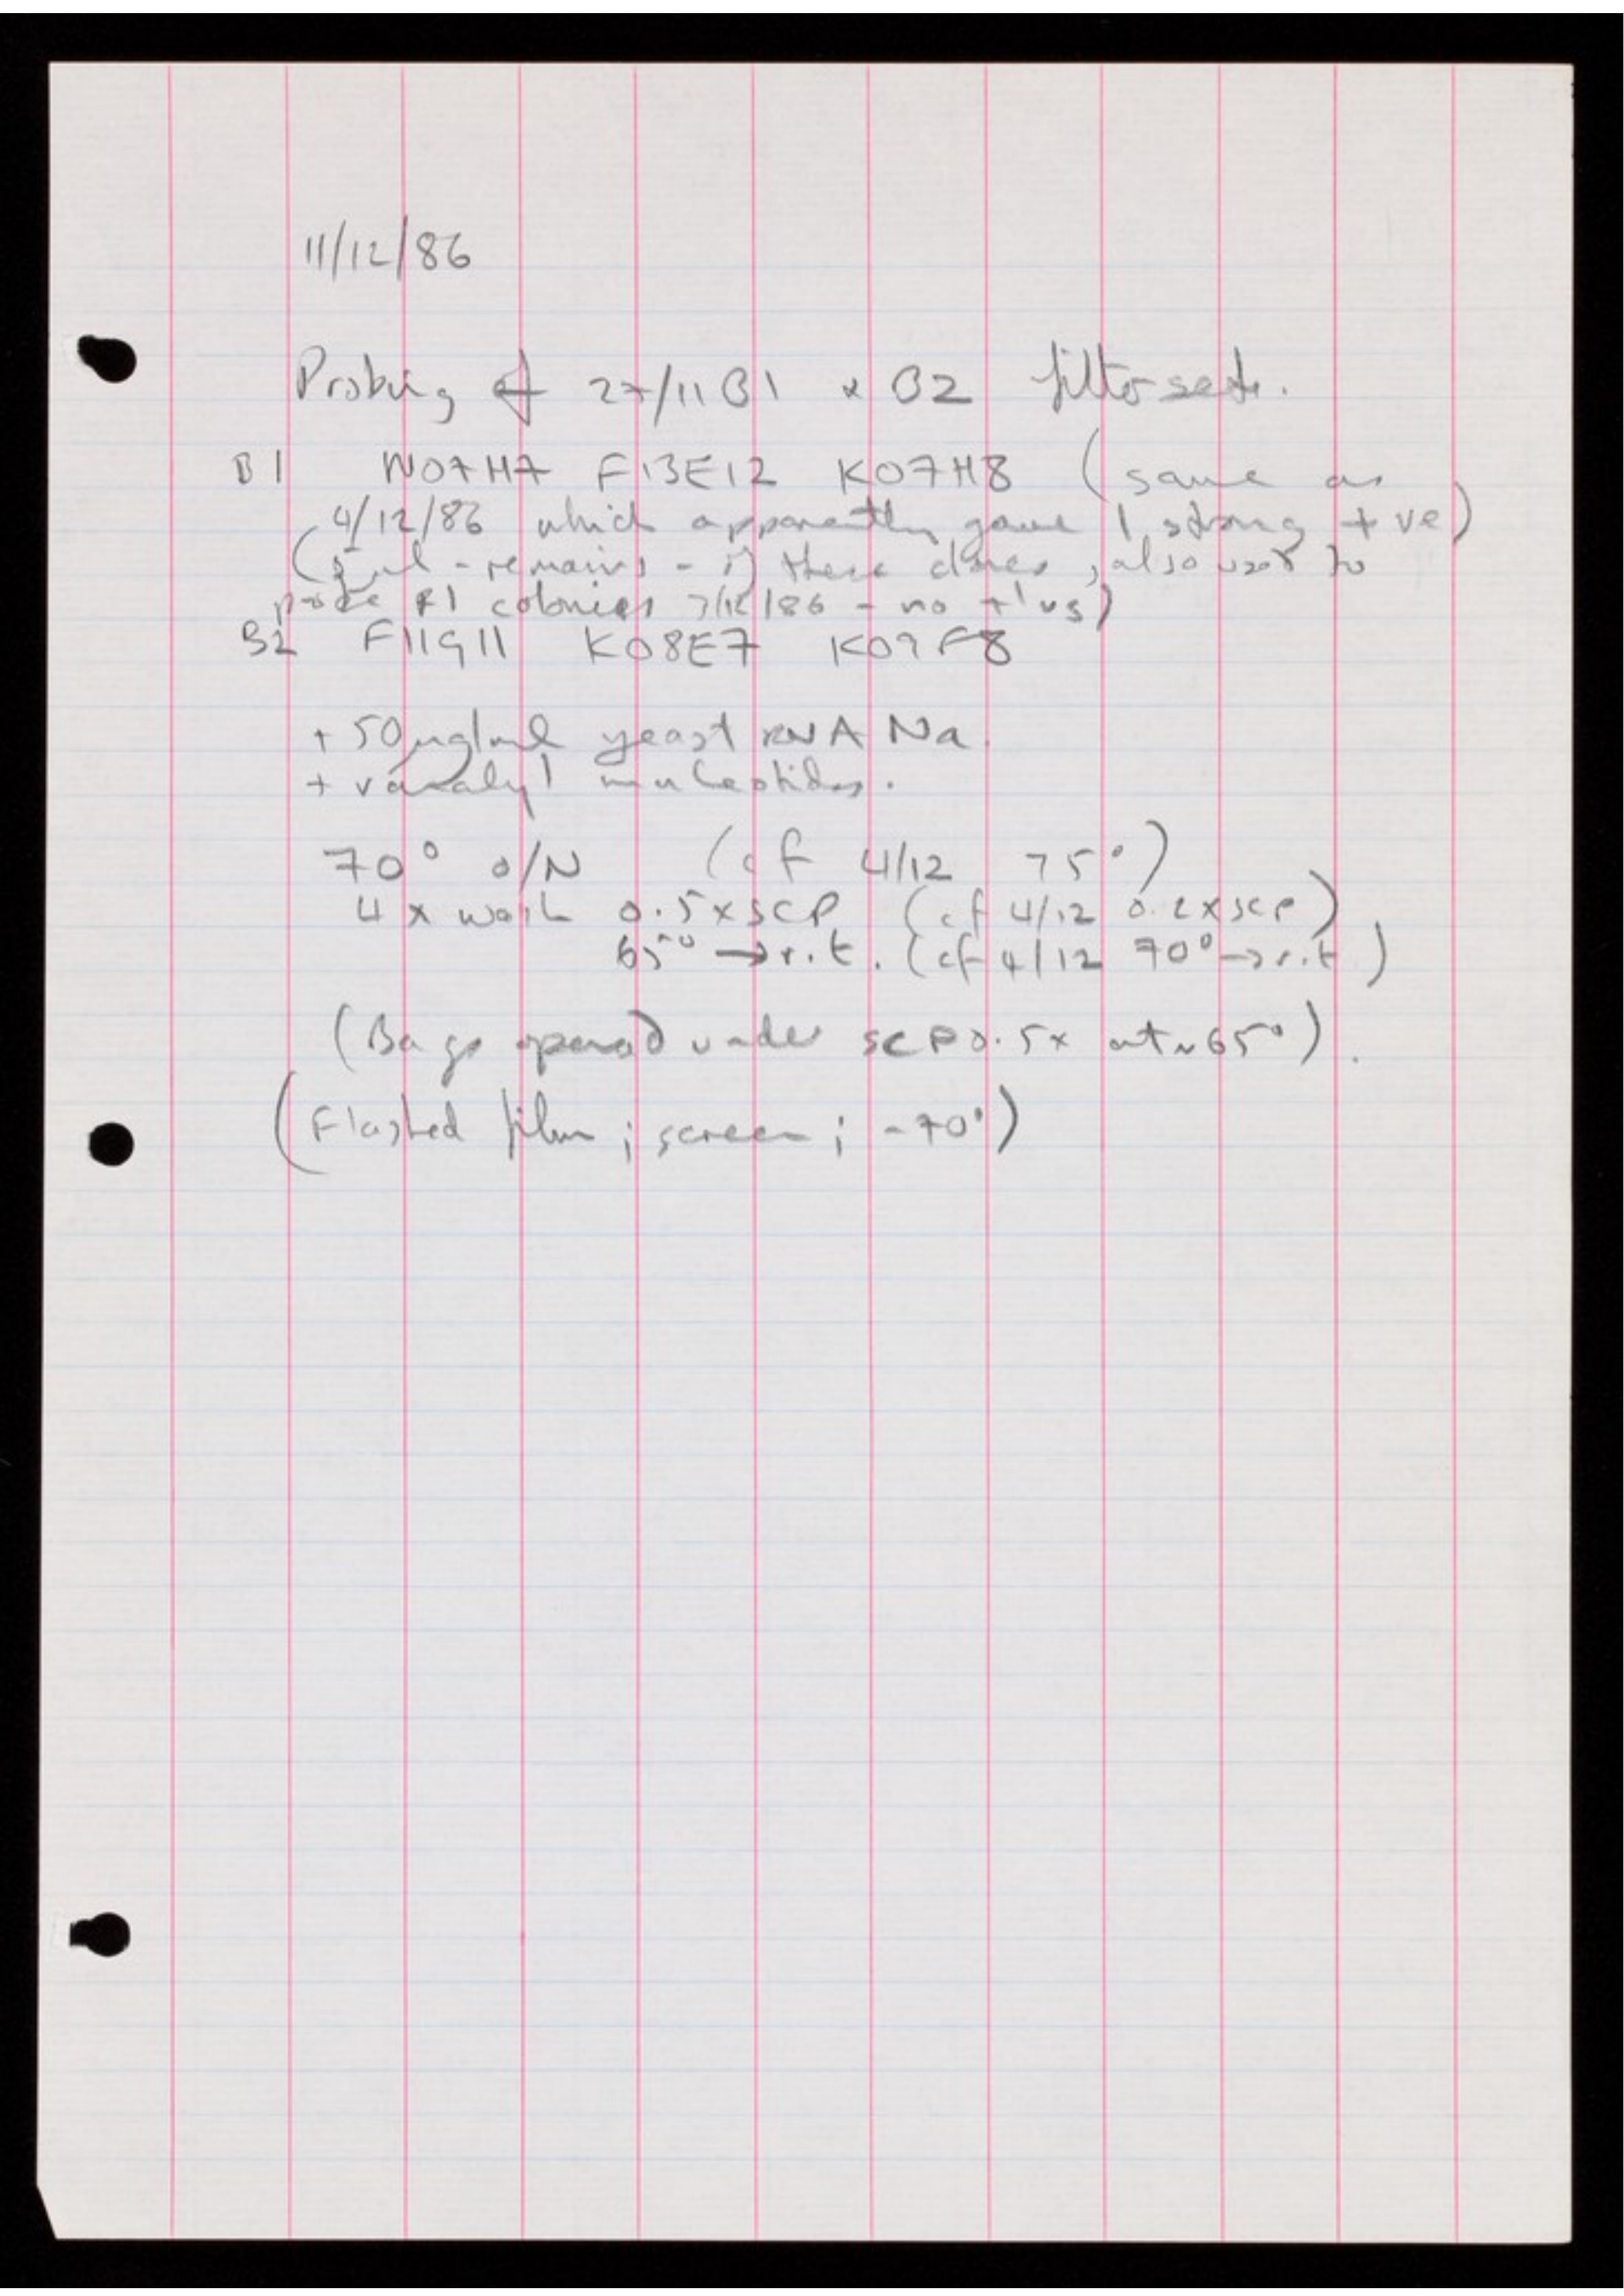 11/12/86
Probing of 27/11 B1 & B2 filter sets.
B1 N07H7 F13E12 K07H8 (same as
4/12/86 which apparently gave 1 strong +ve)
(5µl - remains - of these clones, also used to
probe λ1 colonies 7/12/86 - no +'vs)
B2 F11G11 K08E7 K09F8
+ 50µg/ml yeast RNA Na.
+ vanadyl nucleotides.
70° o/N (cf 4/12 75°)
4 x wash 0.5xSCP (cf 4/12 0.2xSCP)
65° → r.t. (cf 4/12 70° → r.t)
(Bags opened under SCP 0.5x at ~65°).
(Flashed film ; screen ; -70°)